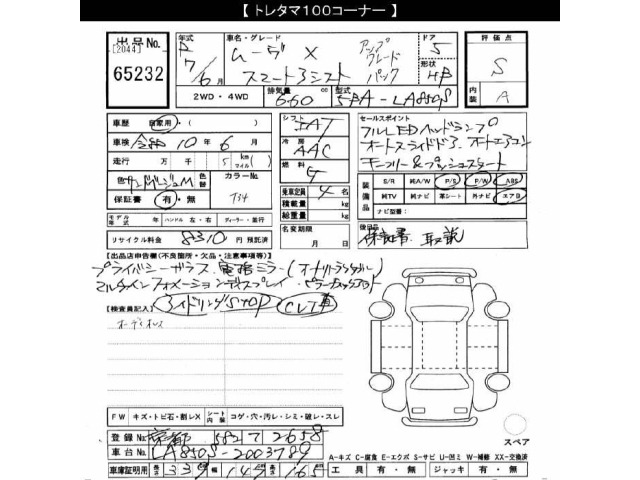 【 トレタマ100コーナー 】
出品No.
[2044]
65232
年式
R7/6月
車名・グレード
ムーヴ X
スマートアシスト
アップグレードパック
ドア
5
形状
HB
評価点
S
内装
A
2WD ・ 4WD
排気量
660 cc
型式
5BA-LA850S
車歴
自家用・( )
車検
令和 10年 6月
走行
万 千 5 km(マイル)
色
色替
カラーNo.
T34
保証書
有・無
モデル年式
年
ハンドル 左・右
ディーラー・並行
リサイクル料金
8310 円
預託済
シフト
IAT
冷房
AAC
燃料
G
乗車定員 4 名
積載量 kg
総重量 kg
名変期限
月 日
セールスポイント
フルLEDヘッドランプ
オートスライドドア オートエアコン
キーフリー&プッシュスタート
装備品
S/R 純A/W P/S P/W ABS
純TV 純ナビ 革シート 外ナビ エアB
ナビ型番:
後日品
保証書 取説
【出品店申告欄(不良箇所・欠品・注意事項等)】
プライバシーガラス
マルチインフォメーションディスプレイ
アイドリングSTOP
CVT車
【検査員記入】
オーディオレス
FW
キズ・トビ石・割レX
シート内装
コゲ・穴・汚レ・シミ・破レ・スレ
登録No.
京都 582 て 2658
車台No.
LA850S-2003789
車庫証明用
長さ 339 幅 147 高さ 165
スペア
A-キズ C-腐食 E-エクボ S-サビ U-凹ミ W-補修 XX-交換済
工具 有・無
ジャッキ 有・無